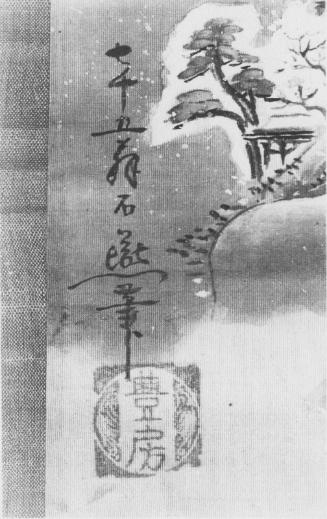 七十五翁石燕筆
豊房